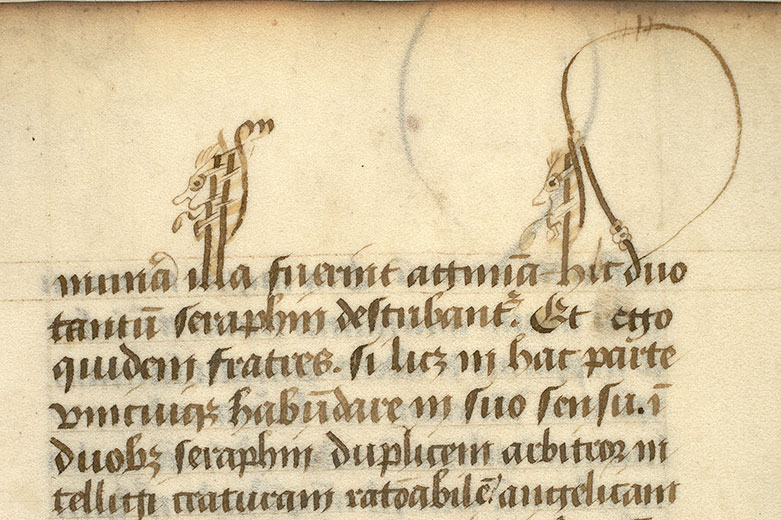 munia illa fuerint attinẽta hic duo
tantū seraphin describant᷑. Et ego
quidem fratres. si licꝫ in hac parte
vnicuiqꝫ habūdare in suo sensu. ī
duobꝫ seraphin duplicem arbitroꝛ in
telligi creaturam ratōabilē / angelicam